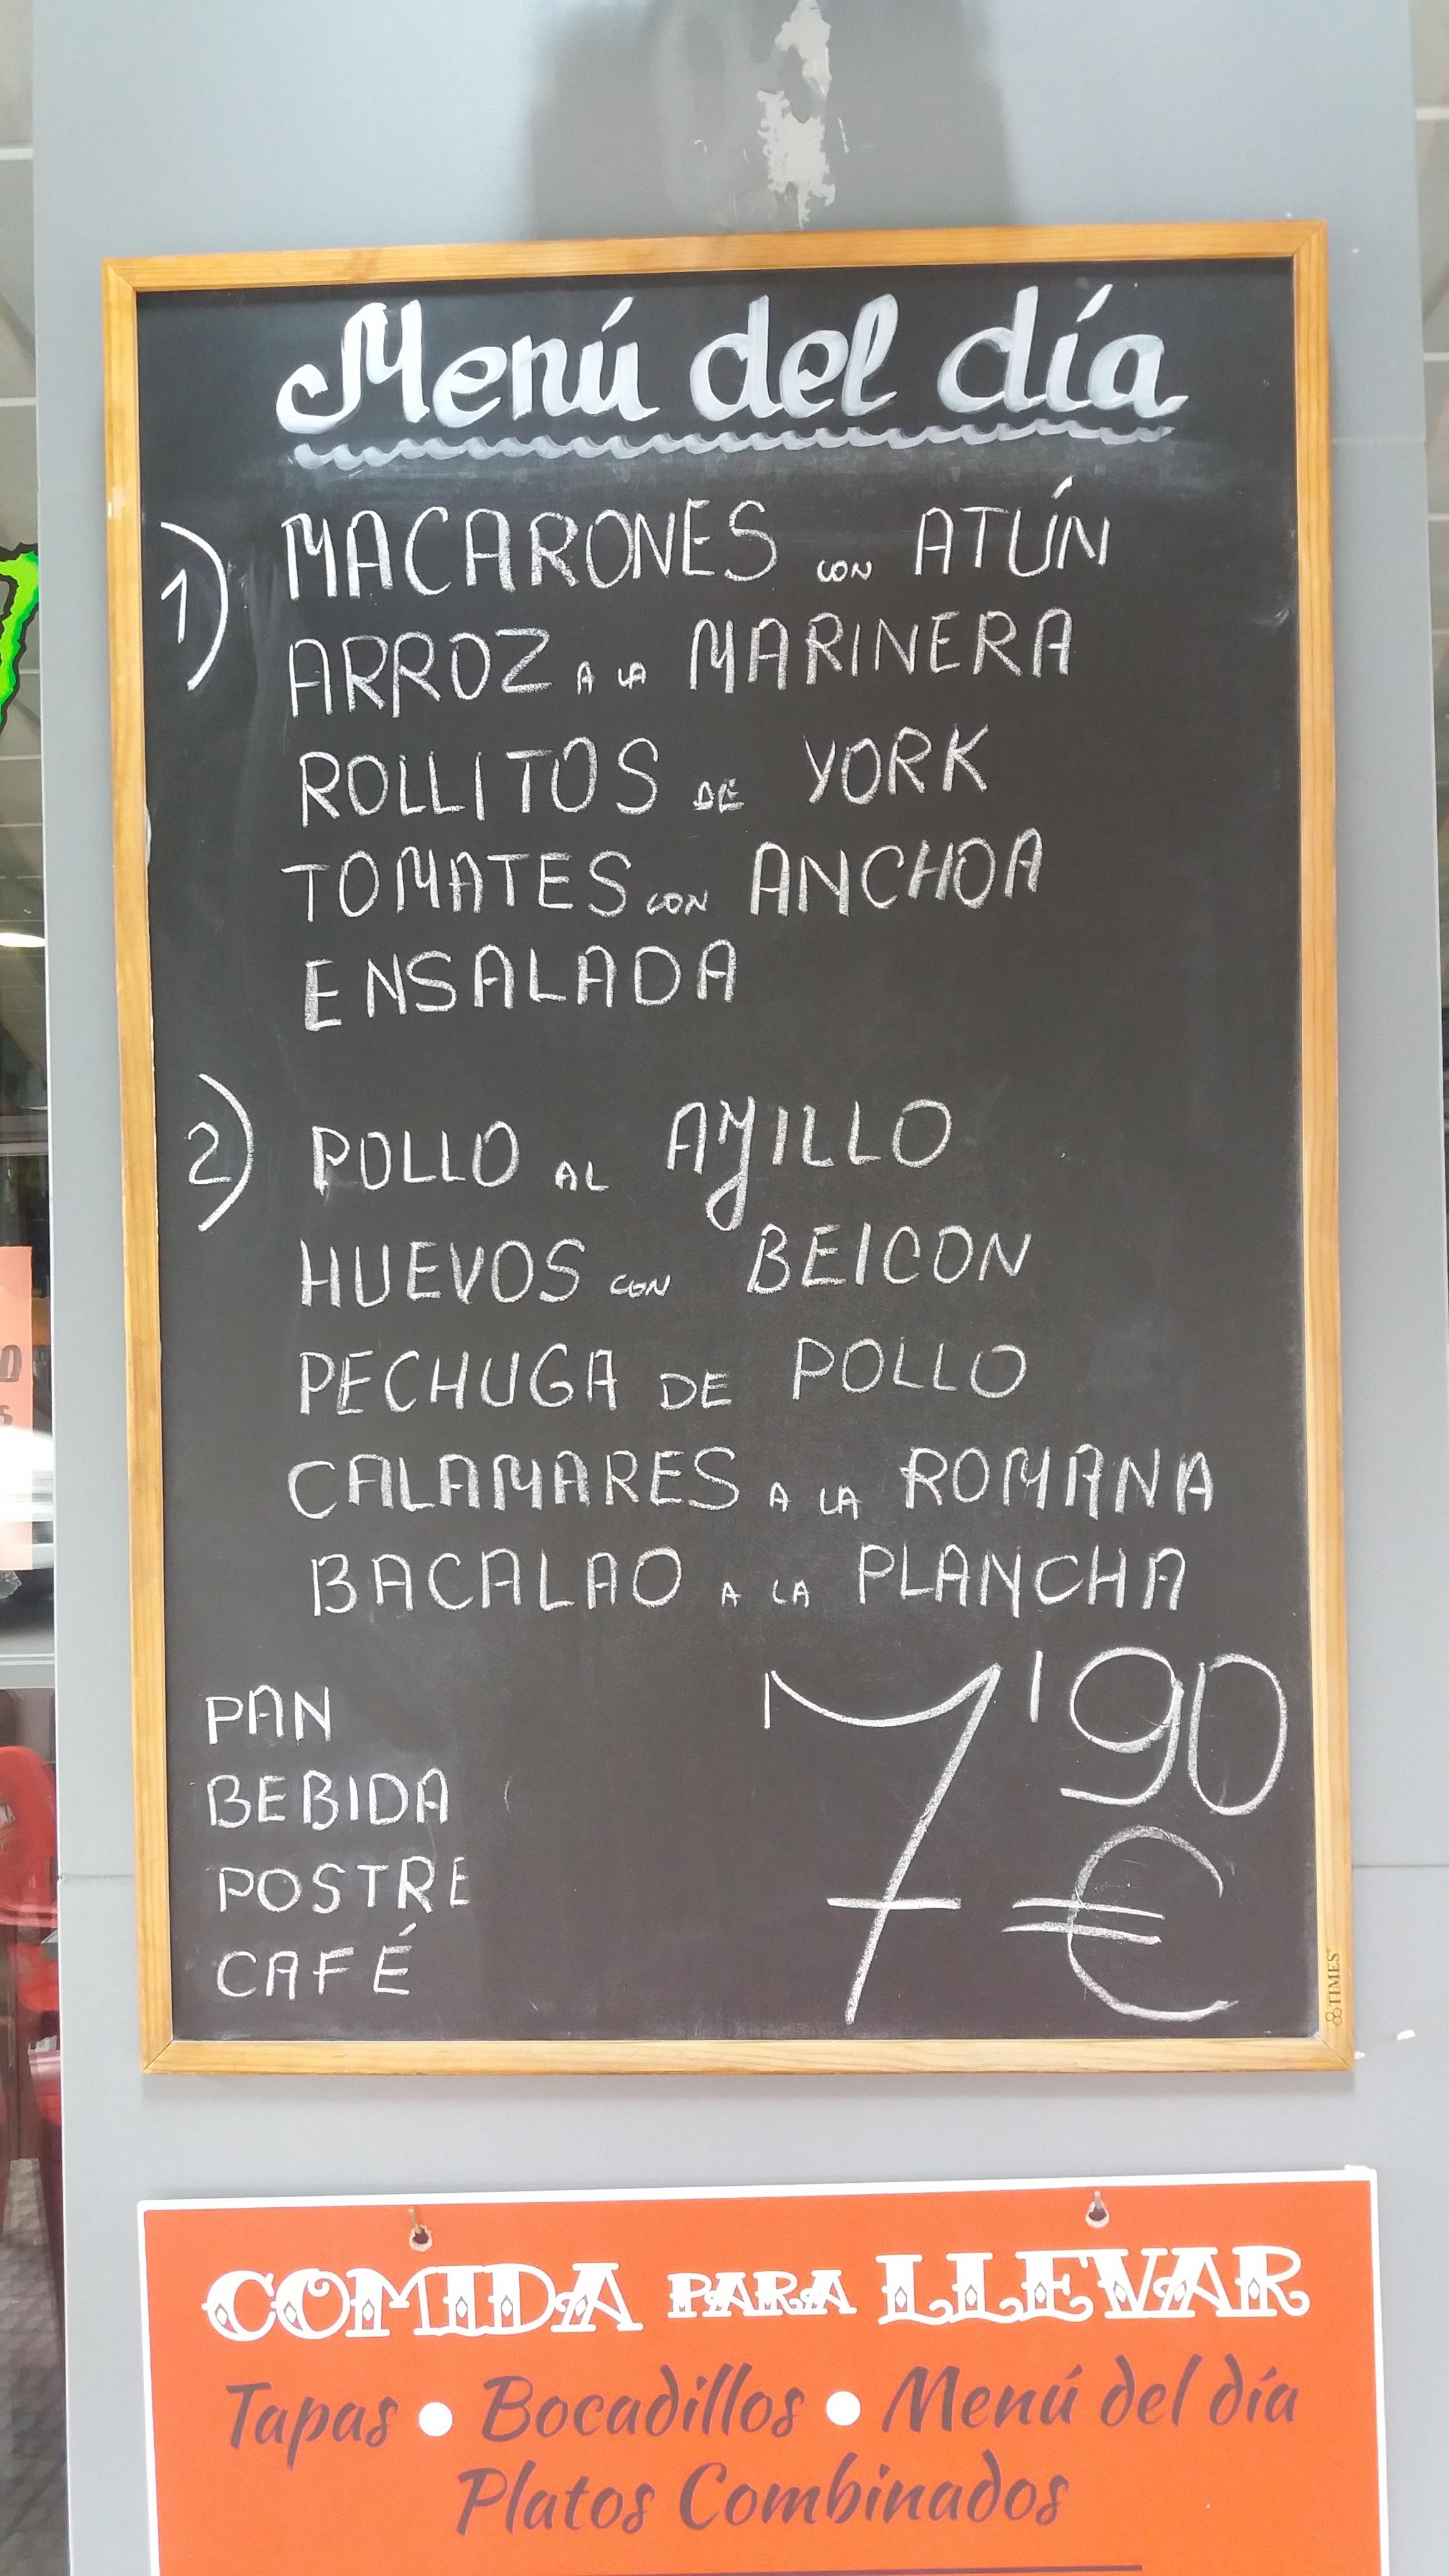 Menú del día
1) MACARONES CON ATÚN
ARROZ A LA MARINERA
ROLLITOS DE YORK
TOMATES CON ANCHOA
ENSALADA
2) POLLO AL AJILLO
HUEVOS CON BEICON
PECHUGA DE POLLO
CALAMARES A LA ROMANA
BACALAO A LA PLANCHA
PAN
BEBIDA
POSTRE
CAFÉ
7'90
€
TIMES
COMIDA PARA LLEVAR
Tapas • Bocadillos • Menú del día
Platos Combinados